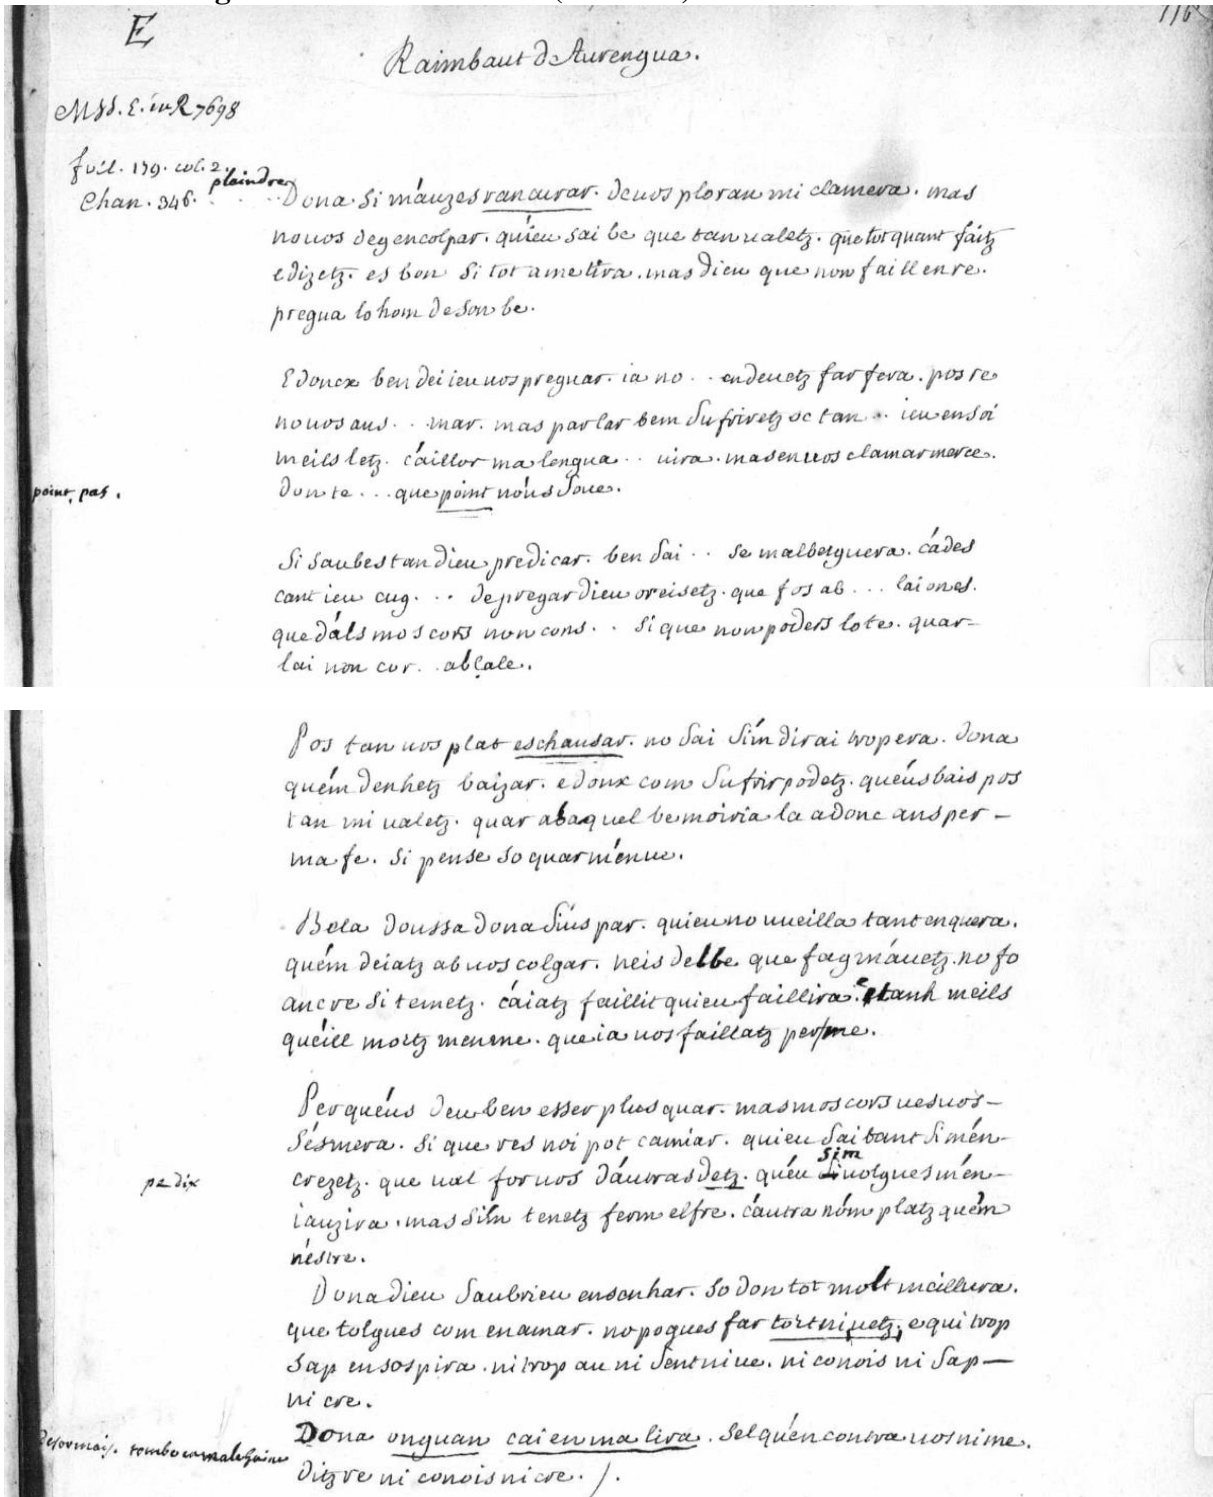 116
E
Raimbaut de Aurengua.
MSS. E. in R 7698
fuil. 179. col. 2.
Chan. 346.
plaindre
Dona Si m'auzes rancurar. deuos ploran mi clamera. mas
nouos deg encolpar. qu'ieu sai be que tan ualetz. que tot quant faitz
e dizetz. es bon Si tot ame tira. mas dieu que non faill en re.
pregua lo hom de son be.
E doncx ben dei ieu uos preguar. ia no . . en deuetz far fera. pos re
no uos aus . . mar. mas parlar bem Sufriretz oc tan . . ieu en soi
meils letz. c'aillor ma lengua . . uira. mas en uos clamar merce.
don te . . . que point no'us Soue.
point, pas.
Si Saubes tan dieu predicar. ben Sai . . Se m'alberguera. c'ades
cant ieu cug . . . de pregar dieu oreisetz. que fos ab . . . lai on es.
que d'als mos cors non cons . . Si que non poders lo te. quar-
lai non cor . . ab l'ale.
Pos tan uos plat eschausar. no Sai Si'm dirai trop era. Dona
qu'em denhetz baizar. e donx com Sufrir podetz. qu'eus bais pos
tan mi ualetz. quar ab aquel be moiria la adonc ans per-
ma fe. Si pense so quar m'enue.
Bela doussa dona Si'us par. quieu no uueilla tant enquera.
qu'em deiatz ab uos colgar. neis del be que fag m'auetz. no fo
anc re Si temetz. c'aiatz faillit quieu faillira. e tanh meils
qu'eill mortz men me. que ia uos faillatz per me.
Per qu'eus deu ben esser plus quar. mas mos cors ues uos-
S'esmera. Si que res noi pot camiar. quieu Sai tant Si m'en-
Sim
crezetz. que ual for uos d'autras detz. qu'eu Si uolgues m'en-
pe dix
iauzira. mas Si'm tenetz ferm el fre. c'autra no'm platz qu'em
n'estre.
Dona dieu Saubr'ieu ensenhar. So don tot molt meillura.
que tolgues com en amar. no pogues far tort ni uetz, e qui trop
Sap en sospira. ni trop au ni Sent ni ue. ni conois ni Sap-
ni cre.
Dona onguan cai en ma lira. Sel qu'en contra uos ni me.
ditz re ni conois ni cre. /.
desormais. tombe en male haine